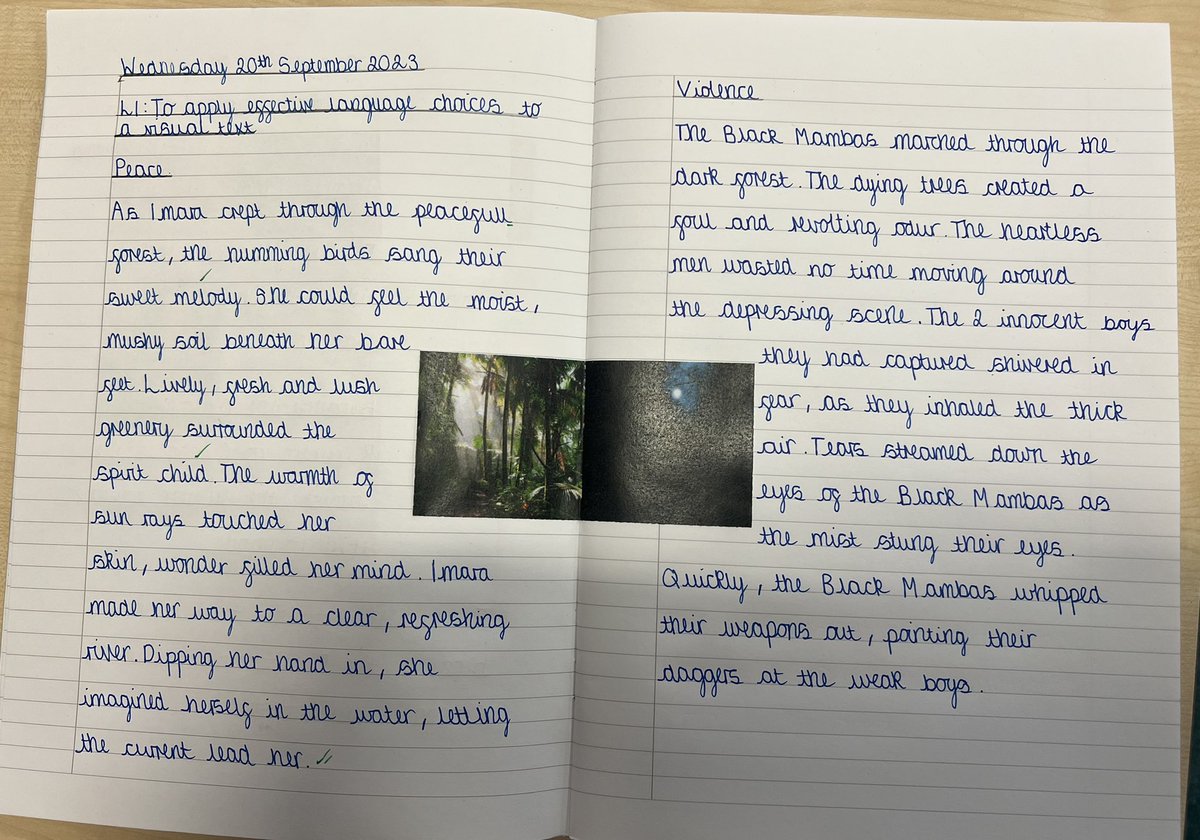 Wednesday 20th September 2023
LI: To apply effective language choices to
a visual text
Peace
As Imara crept through the peacefull
forest, the humming birds sang their
sweet melody. She could feel the moist,
mushy soil beneath her bare
feet. Lively, fresh and lush
greenery surrounded the
spirit child. The warmth of
sun rays touched her
skin, wonder filled her mind. Imara
made her way to a clear, refreshing
river. Dipping her hand in, she
imagined herself in the water, letting
the current lead her.
Violence
The Black Mambas marched through the
dark forest. The dying trees created a
foul and revolting odur. The heartless
men wasted no time moving around
the depressing scene. The 2 innocent boys
they had captured shivered in
fear, as they inhaled the thick
air. Tears streamed down the
eyes of the Black Mambas as
the mist stung their eyes.
Quickly, the Black Mambas whipped
their weapons out, pointing their
daggers at the weak boys.